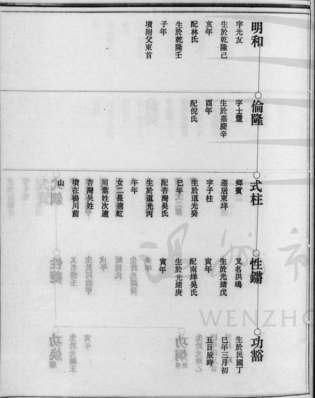 明和
字光友
生於乾隆己
亥年
配林氏
生於乾隆壬
子年
墳附父東首
倫隆
字士豐
生於嘉慶辛
酉年
配倪氏
式柱
鄉賓
遷居東垟
字子柱
生於道光癸
巳年
配杏灣吳氏
生於道光丙
午年
女二長適虹
川葉姓次適
杏灣吳姓
墳在橋川前
山
性鏞
又名洪鳴
生於光緒戊
寅年
配南垟吳氏
生於光緒庚
寅年
功豁
生於民國丁
巳年三月初
五日辰時
WENZHO